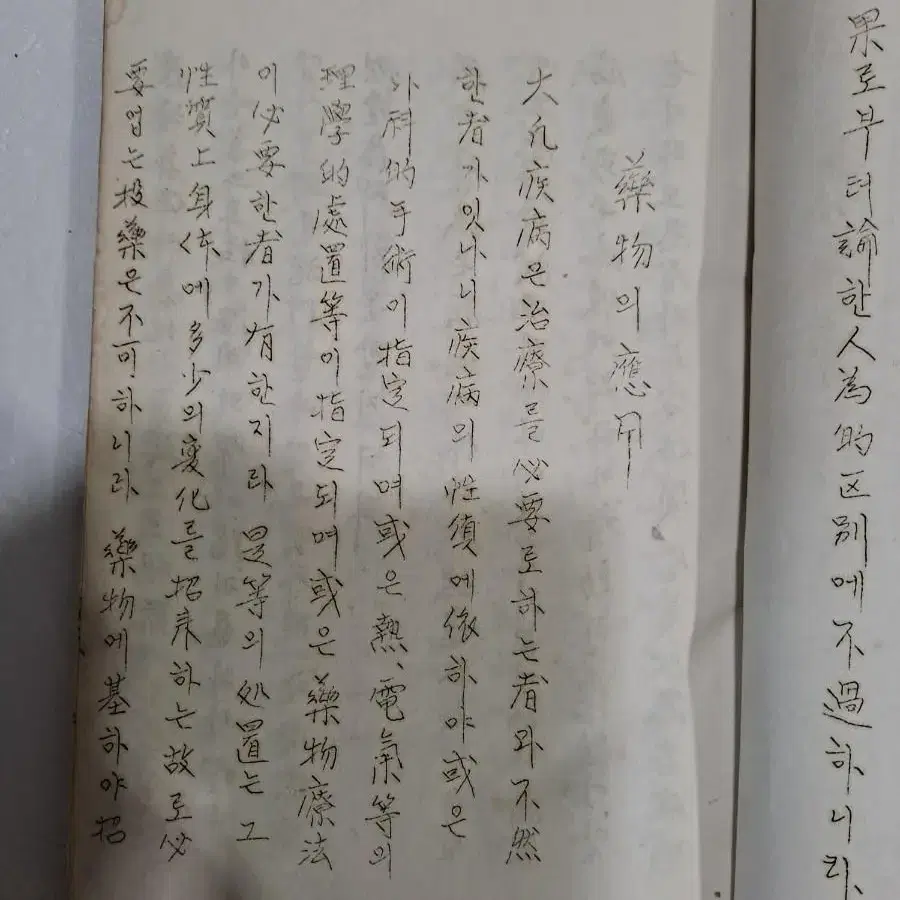 果로부터論한人為的区別에不過하니라、
藥物의應用
大凡疾病은治療를必要로하는者와不然
한者가잇나니疾病의性質에依하야或은
外科的手術이指定되며或은熱、電氣等의
理學的處置等이指定되며或은藥物療法
이必要한者가有한지라 是等의処置는그
性質上身体에多少의変化를招来하는故로必
要업는投藥은不可하니라 藥物에基하야招